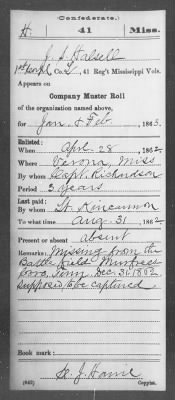 (Confederate.)
H 41 Miss.
J. S. Halsell
Co. , 41 Reg't Mississippi Vols.
Appears on
Company Muster Roll
of the organization named above,
for Jan & Feb, 1863.
Enlisted:
When Apl. 28, 1862
Where Verona, Miss
By whom Capt. Richardson
Period 3 years
Last paid:
By whom Lt. Kincannon
To what time Aug. 31, 1862
Present or absent absent
Remarks: Missing from the
Battle field Murfrees
boro, Tenn, Dec. 31, 1862
supposed to be captured.
Book mark:
(642) Copyist.